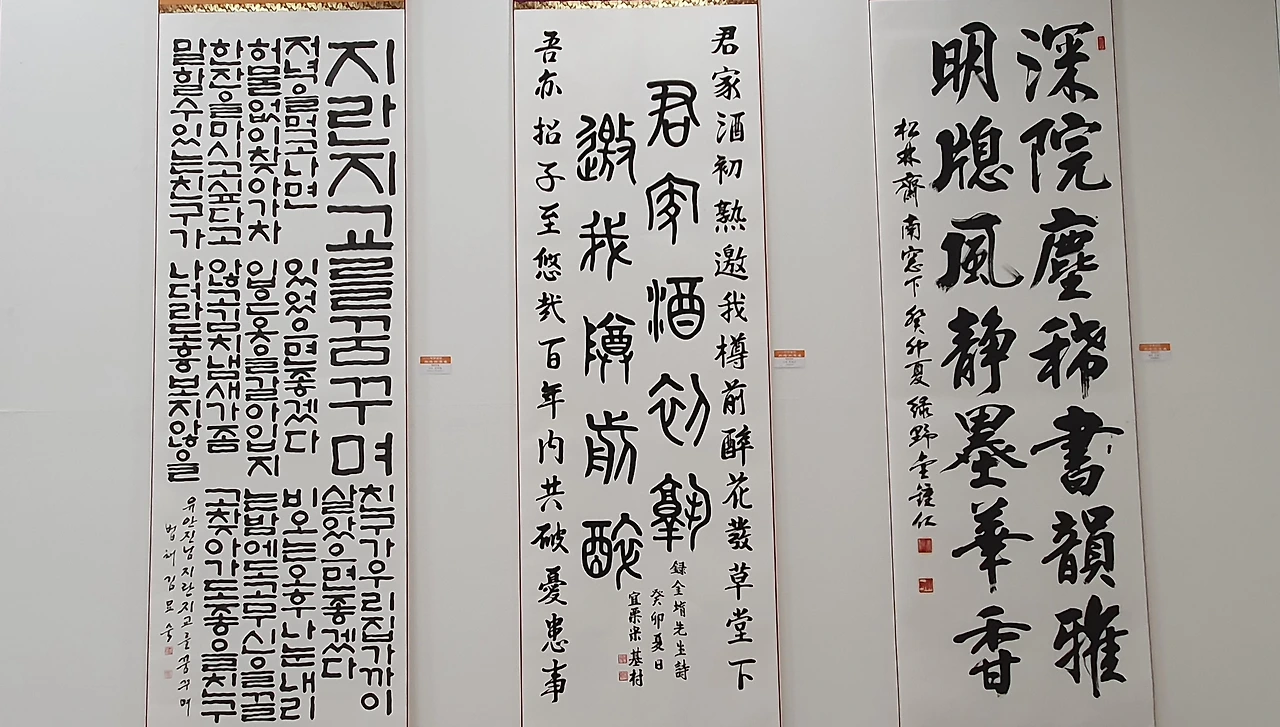 지란지교를꿈꾸며
저녁을먹고나면
허물없이찾아가차
한잔을마시고싶다고
말할수있는친구가
있었으면좋겠다
입은옷을갈아입지
않고김치냄새가좀
나더라도흉보지않을
친구가우리집가까이
살았으면좋겠다
비오는오후나눈내리
는밤에도고무신을끌
고찾아가도좋을친구
유안진님지란지교를꿈꾸며
법채 김
君家酒初熟
邀我罇前醉
君家酒初熟邀我樽前醉花發草堂下
吾亦招子至悠哉百年内共破憂患事
録金堉先生詩
癸卯夏日
宜栗宋基村
深院塵稀書韻雅
明牕風静墨華香
松林齋南窓下癸卯夏緑野金鍾仁